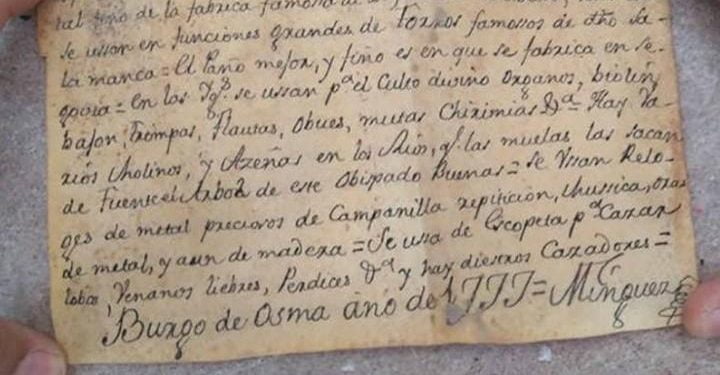 tal fino de la fabrica famosa de
se ussan en funciones grandes de Torros famosos de dho Sa-
lamanca = El Paño mejor, y fino es en que se fabrica en Se-
govia = en las Ygs. se ussan pa. el Culto divino Organos, biolin
bajon, Trompas, Flautas, Obues, mutas Chirimias &a = Hay Va-
rios Molinos, y Azeñas en los Rios, qe. las muelas las sacan
de Fuente el Arbol de este Obispado Buenas = se Vssan Relo-
ges de metal preciosos de Campanilla repiticion, Mussica,
de metal, y aun de madera = Se ussa de Escopeta pa. Cazar
lobos, Venanos liebres, Perdices &a y hay diestros Cazadores =
Burgo de Osma año de 1777 = Minguez